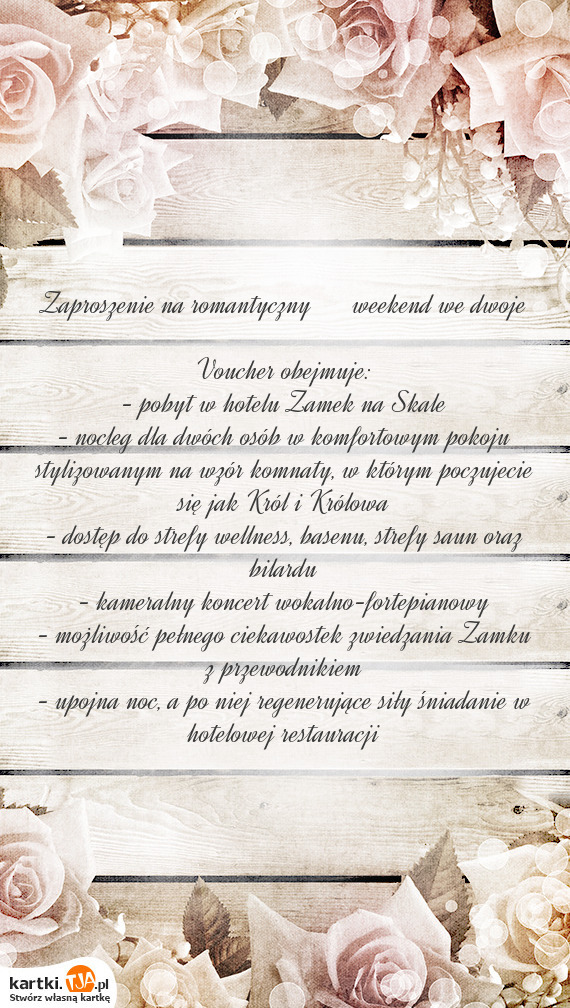 Zaproszenie na romantyczny weekend we dwoje
Voucher obejmuje:
- pobyt w hotelu Zamek na Skale
- nocleg dla dwóch osób w komfortowym pokoju
stylizowanym na wzór komnaty, w którym poczujecie
się jak Król i Królowa
- dostęp do strefy wellness, basenu, strefy saun oraz
bilardu
- kameralny koncert wokalno-fortepianowy
- możliwość pełnego ciekawostek zwiedzania Zamku
z przewodnikiem
- upojna noc, a po niej regenerujące siły śniadanie w
hotelowej restauracji
kartki.TJA.pl
Stwórz własną kartkę